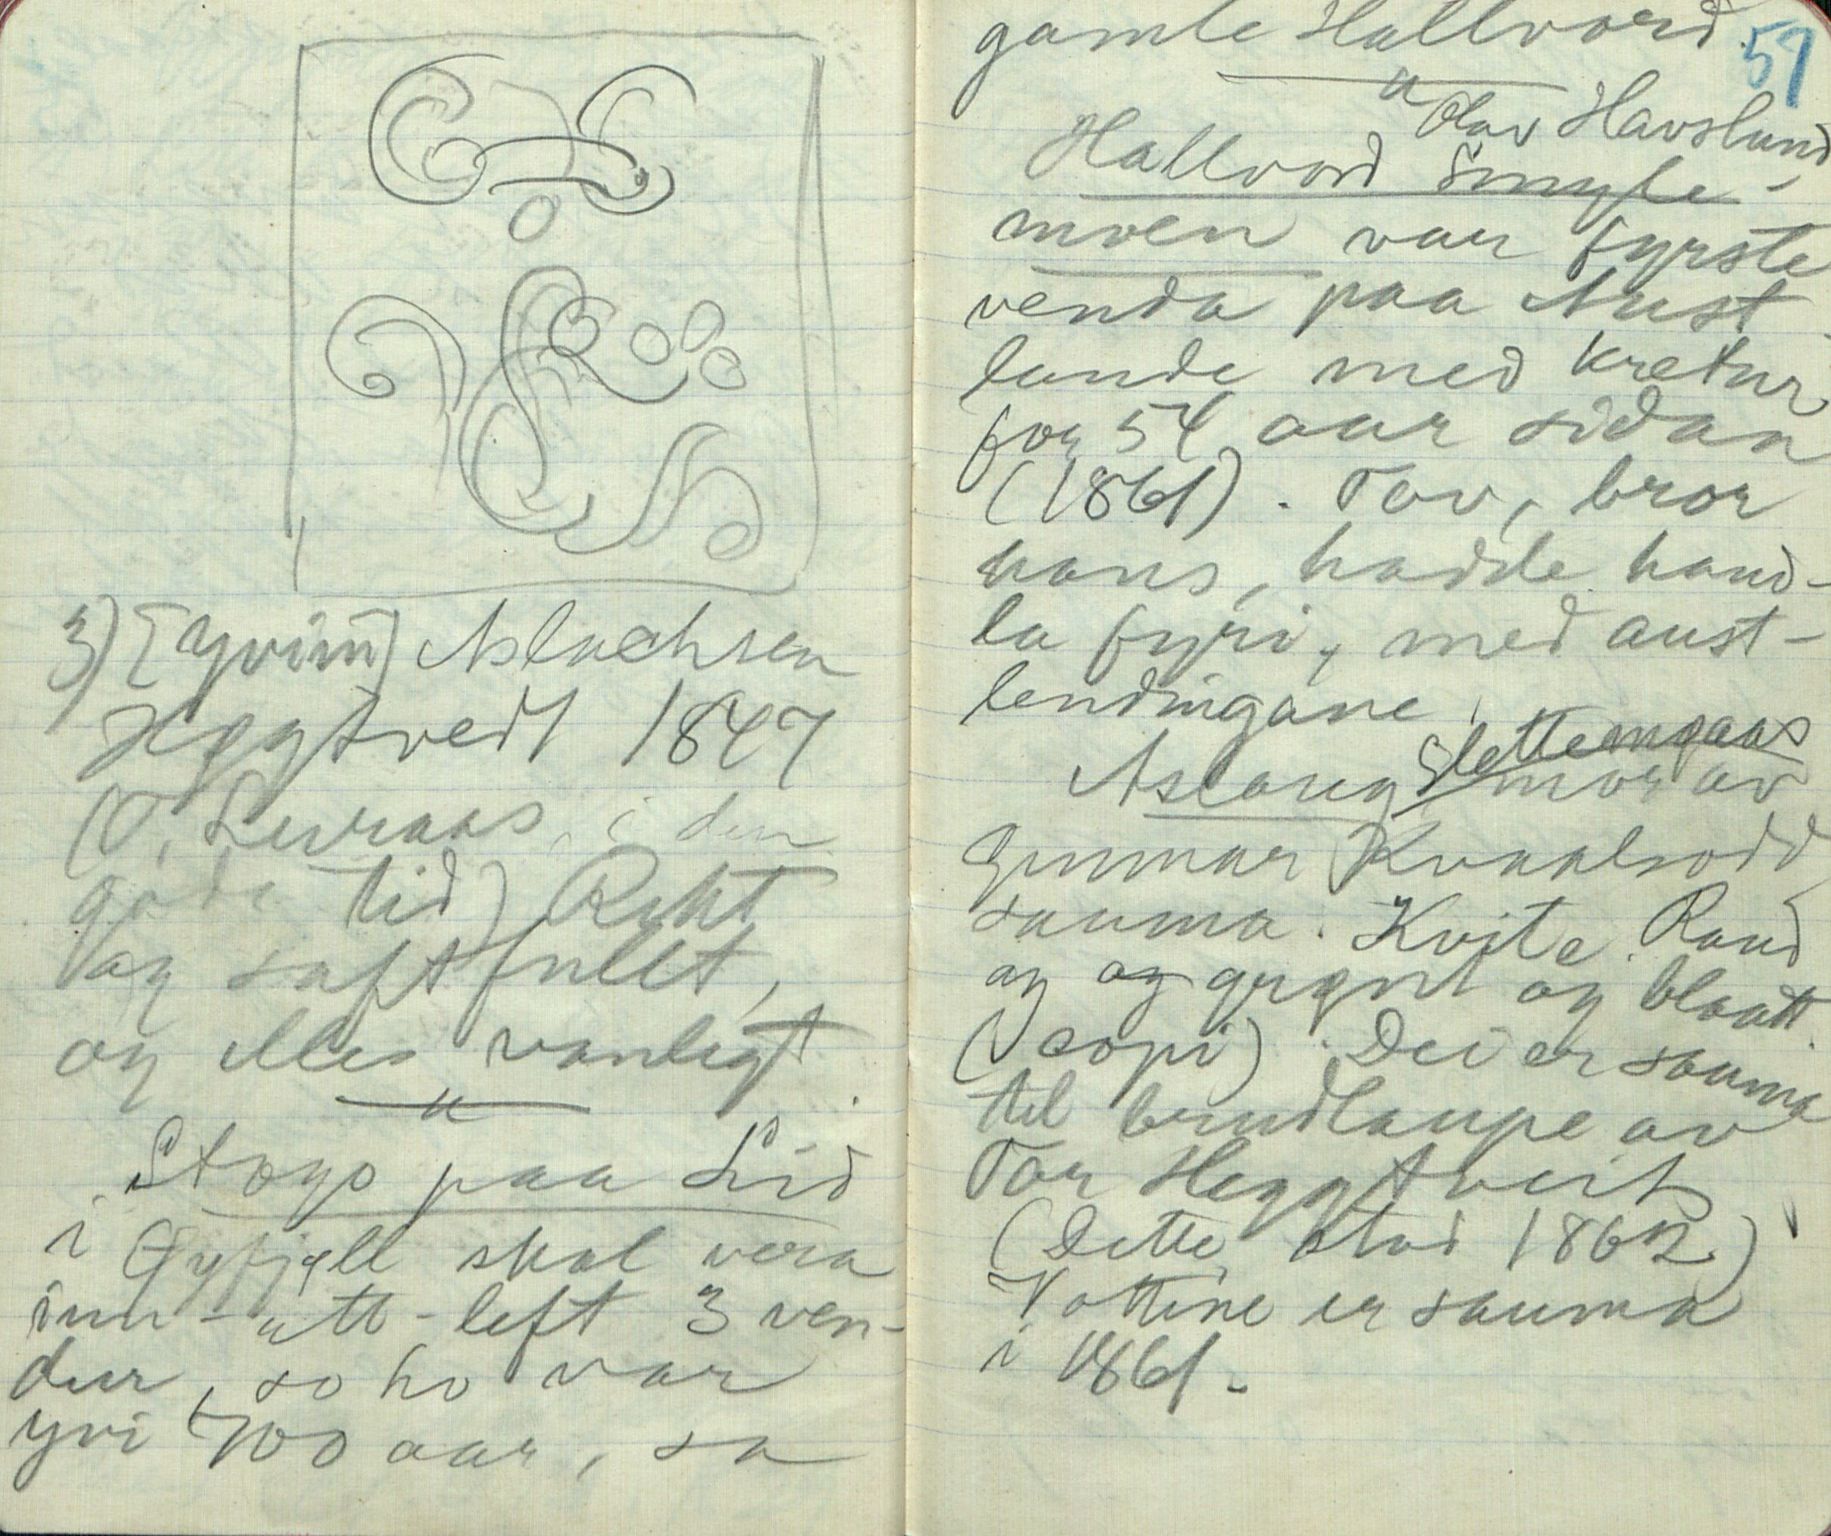 3) [Eyvind] Aslachsen
Heggtvedt 1847
(O. Livraas, i den
gode tid) Rikt
og saftfullt,
og elles vanlegt
Stogo paa Lid
i Gyfjell skal vera
inn-att-left 3 ven-
dur, so ho var
yvi 700 aar, sa
gamle Hallvord
59
Olav Havslund,
Hallvord Smyle-
moen var fyrste
venda paa Aust
lande med kretur
for 54 aar sidan
(1861). Tov, bror
hans, hadde hand-
la fyri, med aust-
lendingane.
Slettemeaas
Aslaug mor av
Gunnar Kvaalsodd
sauma. Kvite. Raud
og og grønt og blaatt.
(copi). Dei er sauma
til brudlaupe av
Tor Heggtveit
(Dette stod 1862)
Vottine er sauma
i 1861.